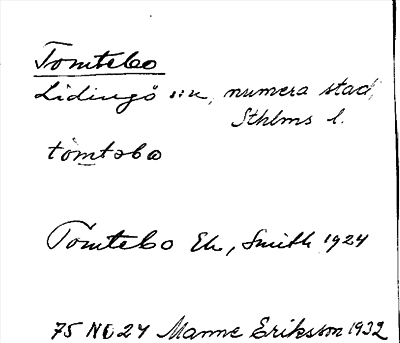 Tomtebo
Lidingö sn, numera stad,
Sthlms l.
tòmtəbo
Tomtebo Ek, Smith 1924
75 NO 24 Manne Eriksson 1932